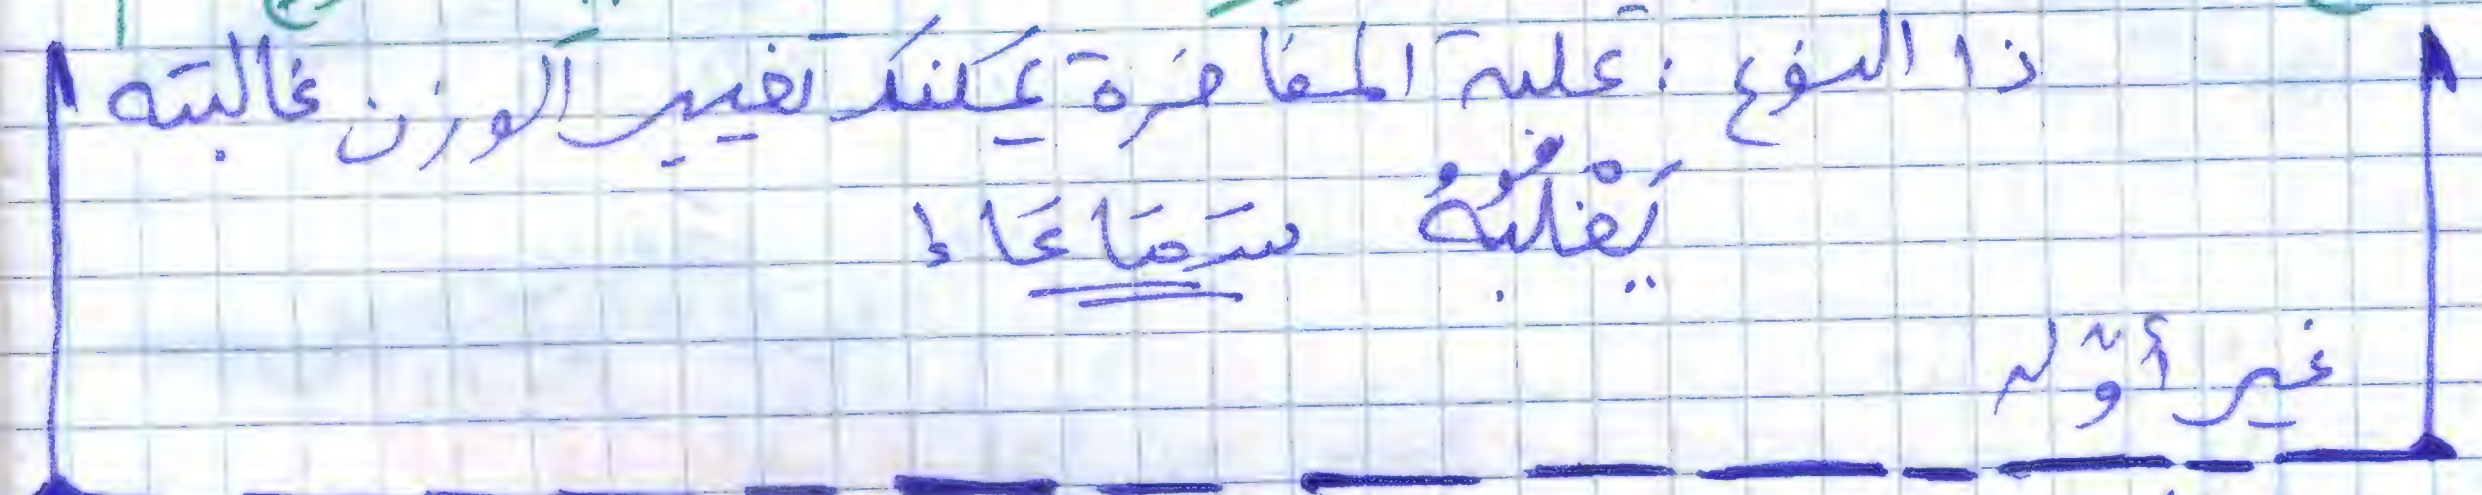 ذا النوع : علبه المفاخرة يمكنك تغيير الوزن غالبته
يَغْلبُهُ سَمَاعَاً
غير أوّله